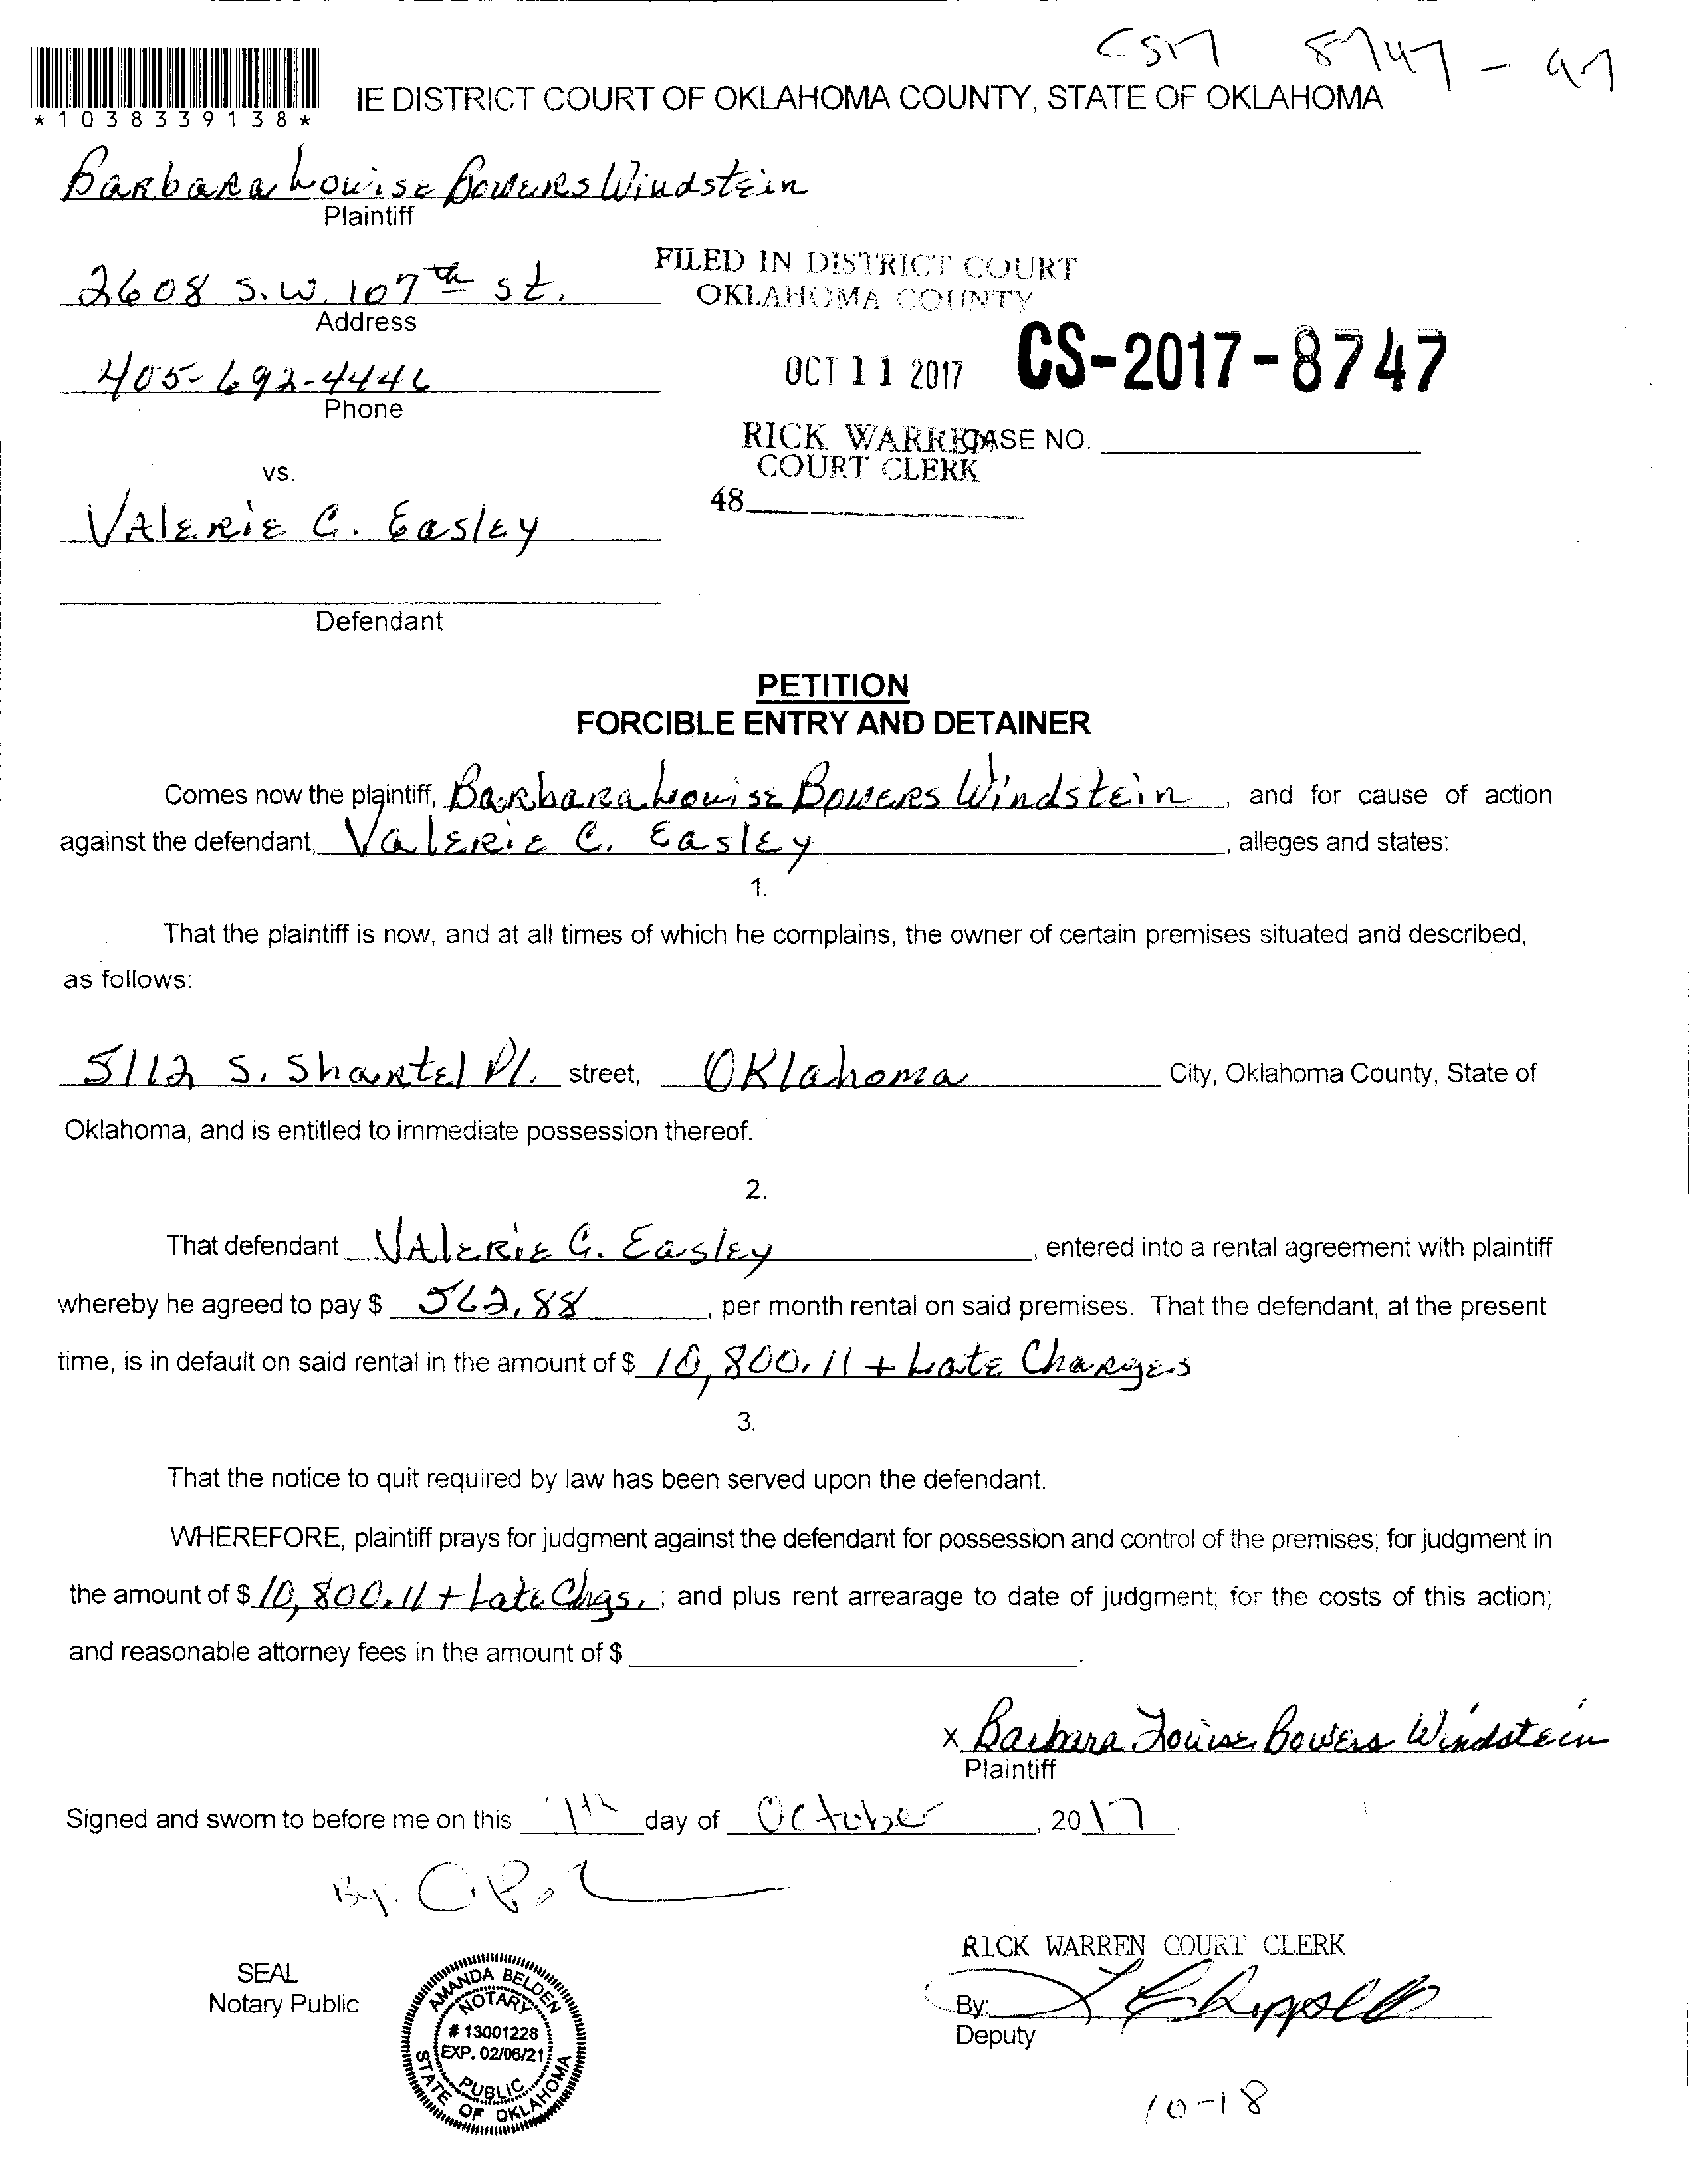 *1038339138*
IE DISTRICT COURT OF OKLAHOMA COUNTY, STATE OF OKLAHOMA
Barbara Louise Bowers Windstein
Plaintiff
2608 S.W. 107th St.
Address
FILED IN DISTRICT COURT
OKLAHOMA COUNTY
405-692-4446
Phone
OCT 11 2017
CS-2017-8747
RICK WARREN
CASE NO.
COURT CLERK
48
vs.
Valerie C. Easley
Defendant
PETITION
FORCIBLE ENTRY AND DETAINER
Comes now the plaintiff, Barbara Louise Bowers Windstein, and for cause of action
against the defendant, Valerie C. Easley, alleges and states:
1.
That the plaintiff is now, and at all times of which he complains, the owner of certain premises situated and described,
as follows:
5112 S. Shartel Pl. street, Oklahoma City, Oklahoma County, State of
Oklahoma, and is entitled to immediate possession thereof.
2.
That defendant Valerie C. Easley, entered into a rental agreement with plaintiff
whereby he agreed to pay $ 562.88, per month rental on said premises. That the defendant, at the present
time, is in default on said rental in the amount of $ 10,800.11 + Late Charges
3.
That the notice to quit required by law has been served upon the defendant.
WHEREFORE, plaintiff prays for judgment against the defendant for possession and control of the premises; for judgment in
the amount of $ 10,800.11 + Late Chgs.; and plus rent arrearage to date of judgment; for the costs of this action;
and reasonable attorney fees in the amount of $ .
x Barbara Louise Bowers Windstein
Plaintiff
Signed and sworn to before me on this 11th day of October, 2017
By:
RICK WARREN COURT CLERK
SEAL
Notary Public
AMANDA BELDEN
NOTARY
# 13001228
EXP. 02/06/21
PUBLIC
STATE OF OKLAHOMA
By:
Deputy
10-18